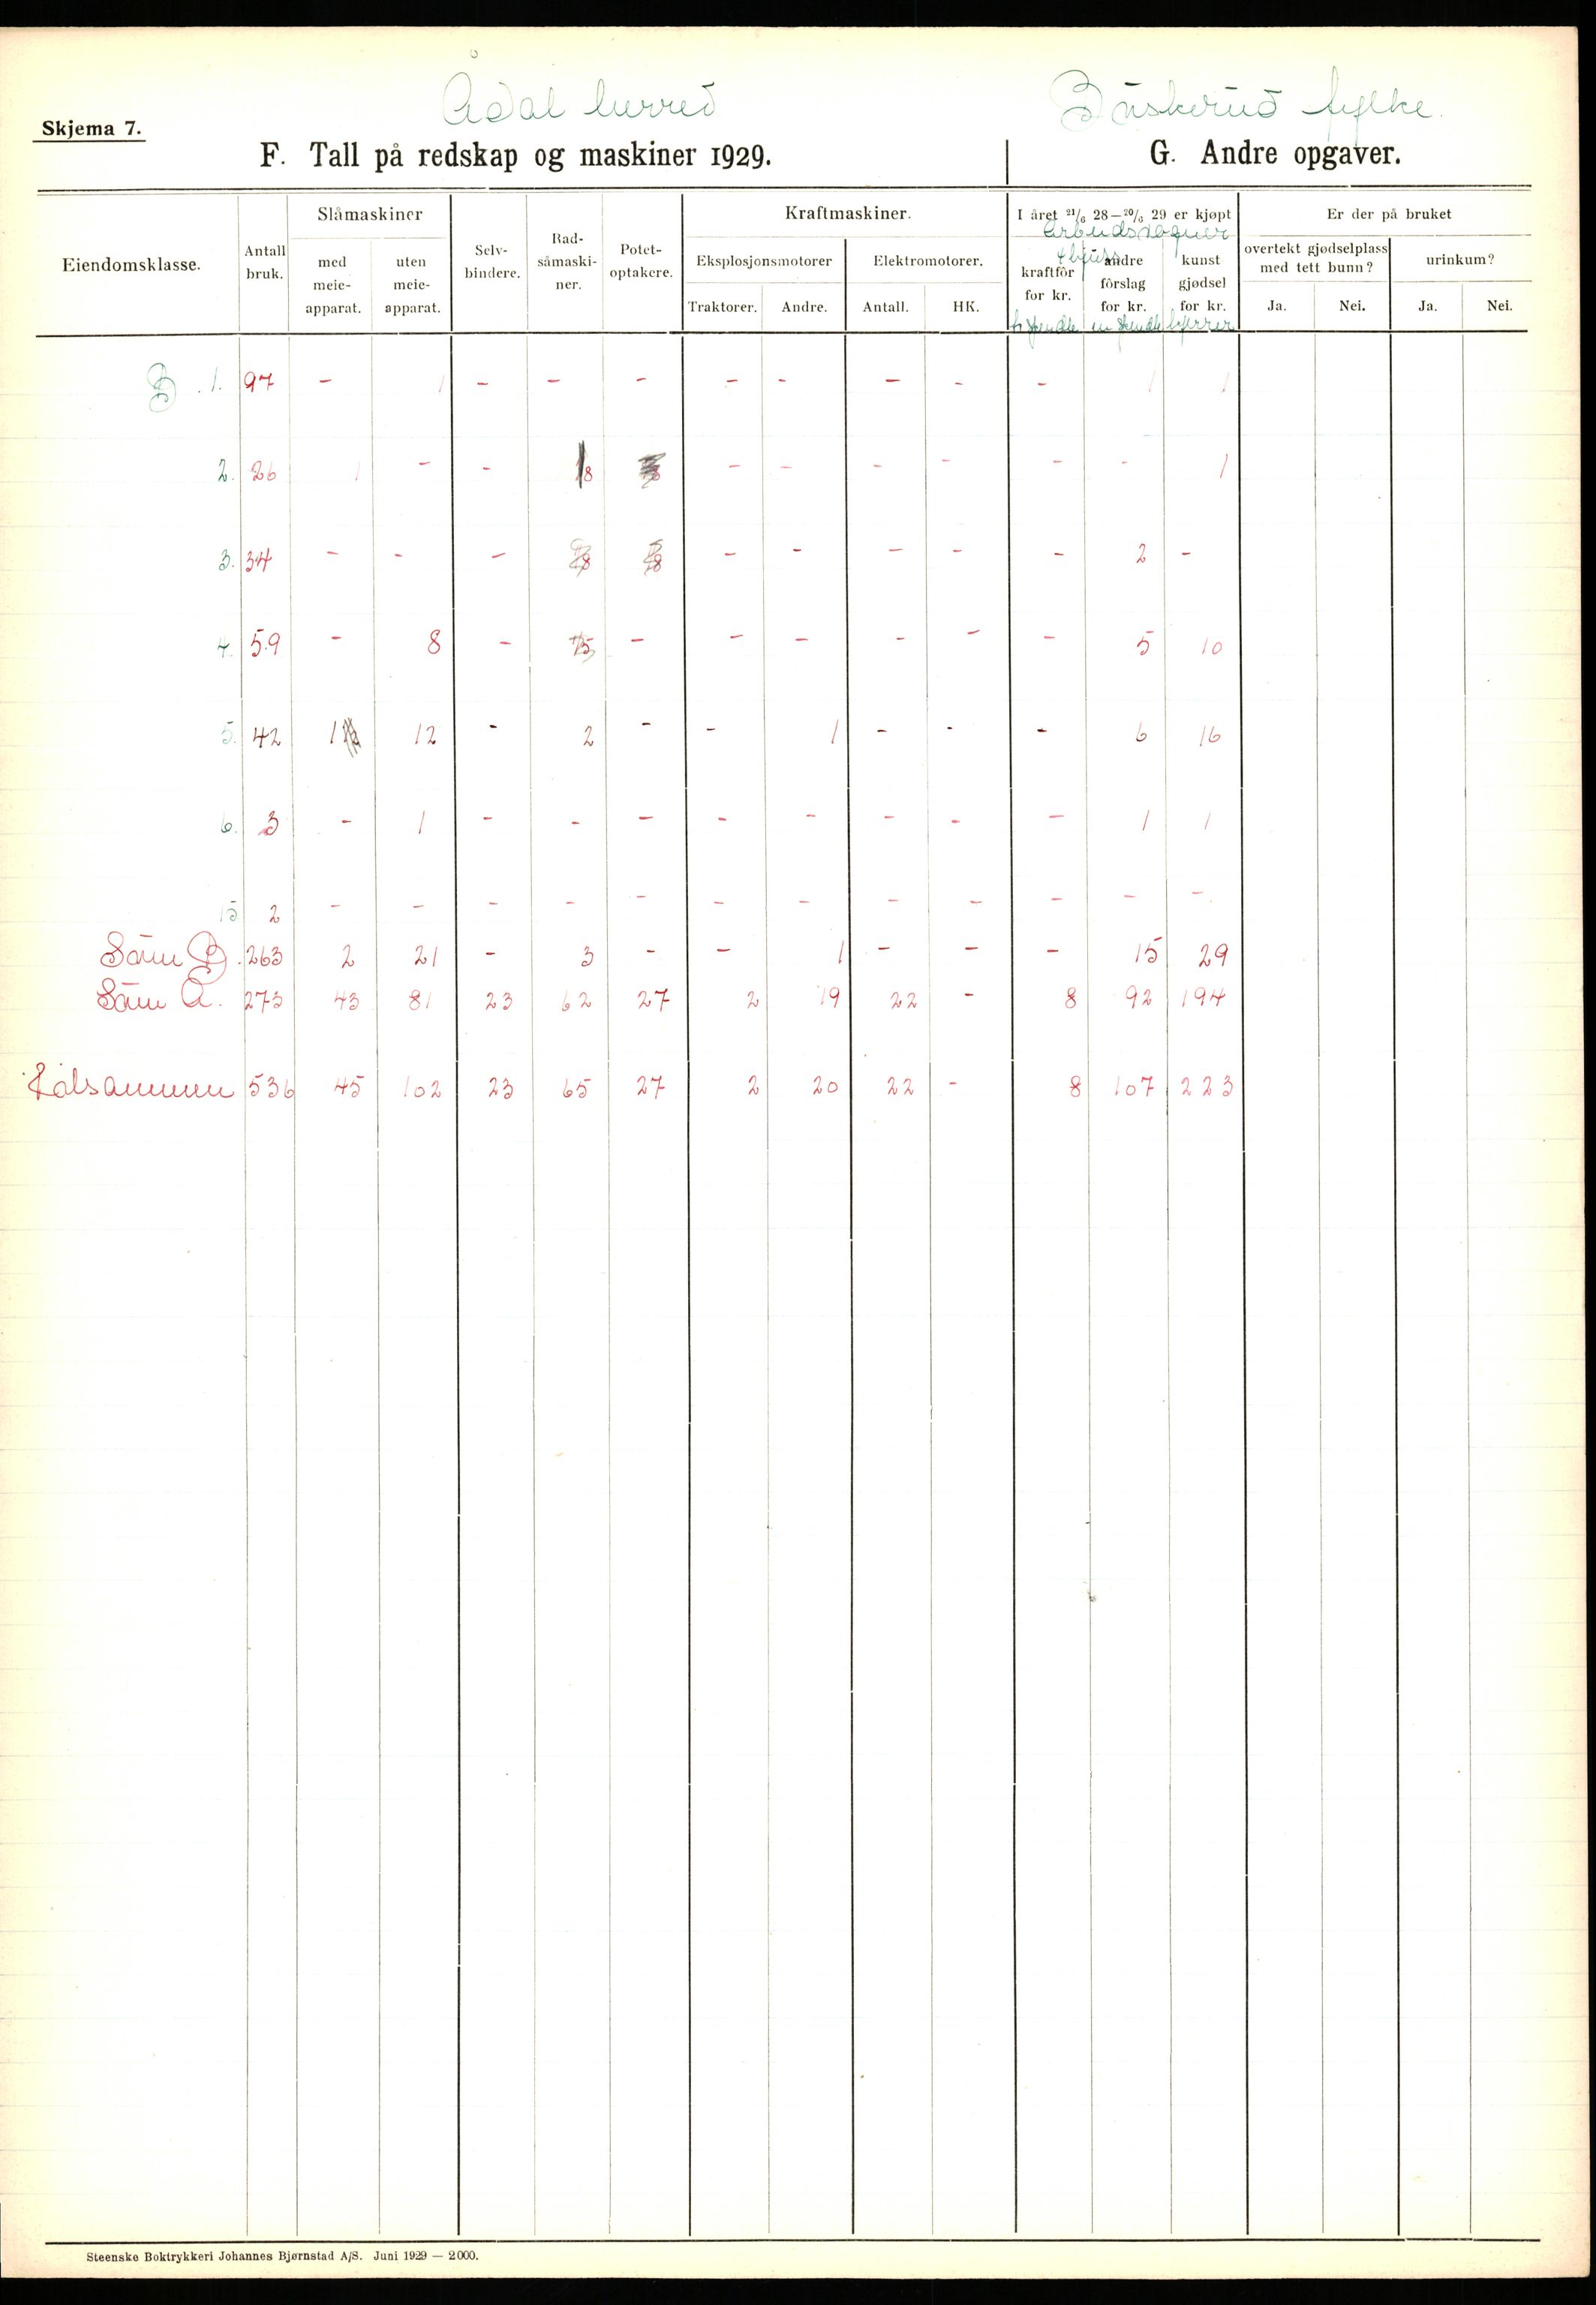 Ådal herred Buskerud fylke.
Skjema 7.
F. Tall på redskap og maskiner 1929. G. Andre opgaver.
Eiendomsklasse. Antall bruk. Slåmaskiner med meie-apparat. uten meie-apparat. Selv-bindere. Rad-såmaski-ner. Potet-optakere. Kraftmaskiner. Eksplosjonsmotorer Traktorer. Andre. Elektromotorer. Antall. HK. I året 21/6 28—20/6 29 er kjøpt kraftfôr for kr. andre fôrslag for kr. kunst gjødsel for kr. Er der på bruket overtekt gjødselplass med tett bunn? Ja. Nei. urinkum? Ja. Nei.
Arbeidsvogner
4 hjuls
B. 1. 97 - 1 - - - - - - - - 1 1
2. 26 1 - - 1 - - - - - - 1
3. 34 - - - - - - - - 2 -
4. 59 - 8 - - - - - - - 5 10
5. 42 1 12 - 2 - - 1 - - - 6 16
6. 3 - 1 - - - - - - - - 1 1
15 2 - - - - - - - - - - - -
Sum B. 263 2 21 - 3 - - 1 - - - 15 29
Sum A. 273 43 81 23 62 27 2 19 22 - 8 92 194
Tilsammen 536 45 102 23 65 27 2 20 22 - 8 107 223
Steenske Boktrykkeri Johannes Bjørnstad A/S. Juni 1929 — 2000.